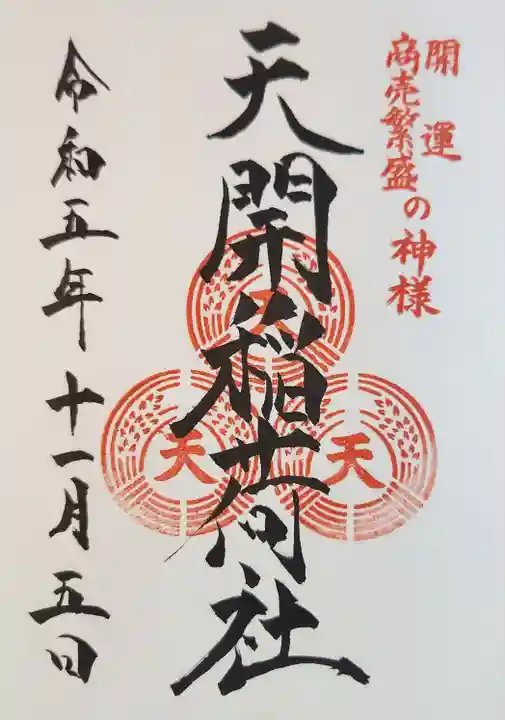 開運
商売繁盛の神様
天開稲荷社
天
天
天
令和五年十一月五日